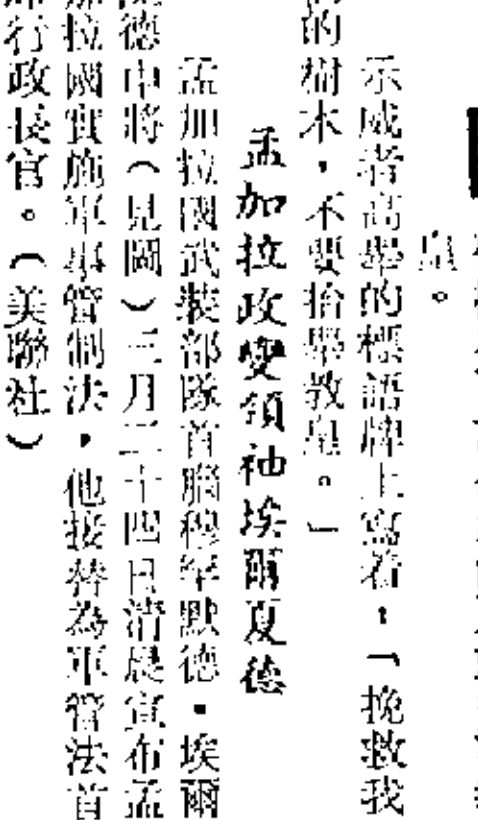 皇。
示威者高舉的標語牌上寫着,「挽救我
的樹木,不要抬舉教皇。」
孟加拉政變領袖埃爾夏德
孟加拉國武裝部隊首腦穆罕默德·埃爾
德中將(見圖)三月二十四日清晨宣布孟
加拉國實施軍事管制法,他接替為軍管法首
席行政長官。(美聯社)